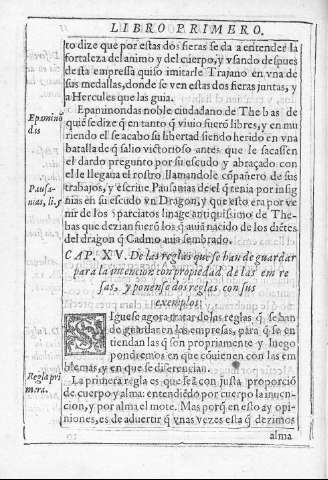 LIBRO PRIMERO.
to dize que por estas dos fieras se da a entender la
fortaleza del animo y del cuerpo, y vsando despues
desta empressa quiso imitarle Trajano en vna de
sus medallas, donde se ven estas dos fieras juntas, y
a Hercules que las guia.
Epaminõ
dis
Epaminondas noble ciudadano de Thebas de
quiē se dize q̃ en tanto q̃ viuio fuerõ libres, y en mu
riendo el se acabo su libertad siendo herido en vna
batalla de q̃ salio victorioso antes que le sacassen
el dardo pregunto por su escudo y abraçado con
el le llegaua el rostro llamandole cõpañero de sus
Pausa-
nias, li, 5
trabajos, y escriue Pausanias de el q̃ tenia por insig
nias en su escudo vn Dragon, y que esto era por ve
nir de los sparciatos linage antiquissimo de The-
bas que dezian fuerõ los q̃ auiā nacido de los diētes
del dragon q̃ Cadmo auia sembrado.
CAP. XV. De las reglas que se han de guardar
para la intencion con propiedad de las em re
sas, y ponense dos reglas con sus
exemplos;
SIguese agora tratar de las reglas q̃ se han
de guardar en las empresas, para q̃ se en
tiendan las q̃ son propriamente y luego
pondremos en que cõuienen con las em
blemas, y en que se diferencian.
Regla pri
mera.
La primera regla es que seā con justa proporciõ
de cuerpo y alma: entendiēdo por cuerpo la inuen-
cion, y por alma el mote. Mas porq̃ en esto ay opi
niones, es de aduertir q̃ vnas vezes esta q̃ dezimos
alma